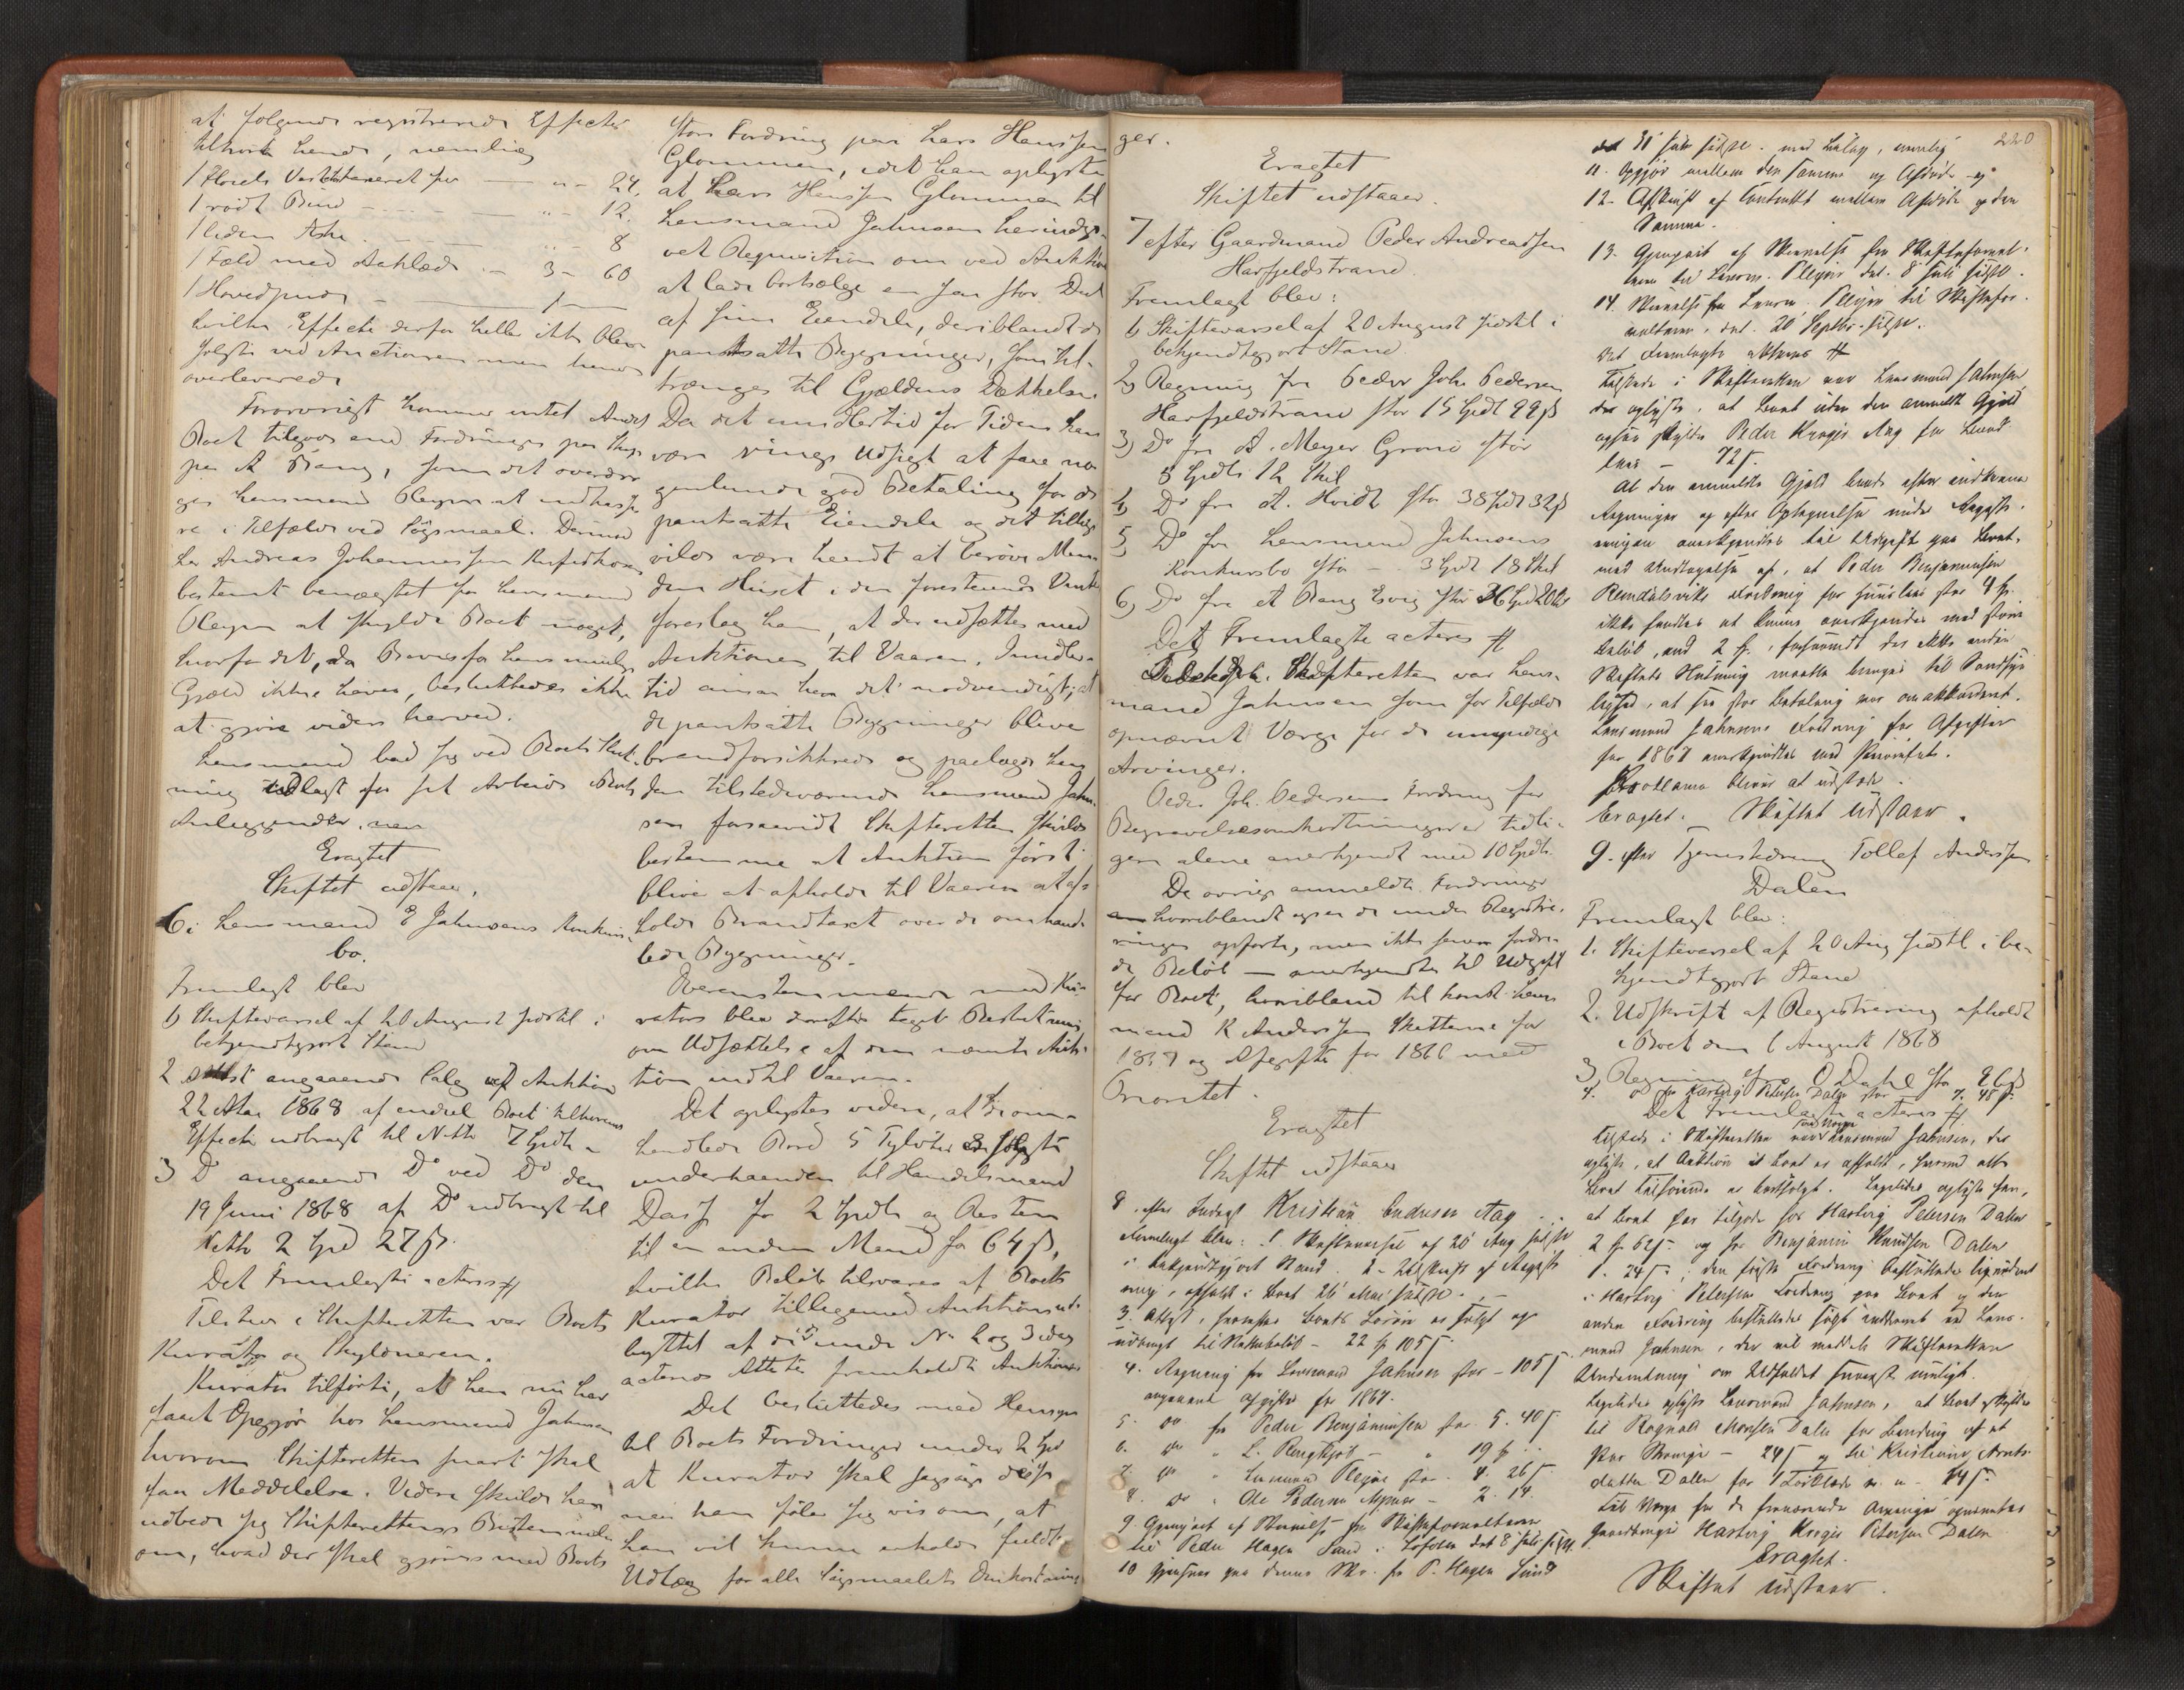 at følgende registrerede Effecter
tilhørte hende, nemlig
1 Vest taxeret for — " - 24.
1 rødt Baand - " - 12.
1 liden Æske - " - 8
1 Fæld med Aaklæde - 3 - 60
1 Hovedpude - 1 -
hvilke Effecter derfor heller ikke bleve
solgte ved Auctionen men hende
overleverede
Forøvrigt kommer intet Andet
Boet tilgode end Fordringer paa
paa A Bang, som det overdra-
ges Lensmand Pleym at indkasse-
re i Tilfælde ved Søgsmaal. Derimod
har Andreas Johannessen
bestemt benægtet for Lensmand
Pleym at skylde Boet noget,
hvorfor det, da Beviser for hans mulige
Gjæld ikke haves, besluttedes ikke
at gjøre videre herved.
Lensmand bad sig ved Boets Slut-
ning udlagt for sit Arbeide Boets
Anliggender.
Eragtet
Skiftet udstaaer.
6 i Lensmand E Jahnsens Konkurs-
bo.
Fremlagt blev
1 Skiftevarsel af 20 August sidstl i
bekjendtgjort Stand
2 Attest angaaende Salg ved Auktion
22 Mai 1868 af endel Boet tilhørende
Effecter udbragt til Netto 7 Spdlr
3 Do angaaende Do ved Do den
19 Juni 1868 af Do udbragt til
Netto 2 Spd 27 ß.
Det Fremlagte acteres #
Tilstede i Skifteretten var Boets
Kurator og Skyldneren.
Kurator tilførte, at han nu har
faaet Opgjør hos Lensmand Jahnsen
hvorom Skifteretten snart skal
faa Meddelelse. Videre skulde han
udbede sig Skifterettens Bestemmelse
om, hvad der skal gjøres med Boets
store Fordring paa Lars Hanssen
Glommen, idet han oplyste
at Lars Hanssen Glommen til
Lensmand Jahnsen har indgi-
vet Requisition om ved Auktion
at lade bortsælge en saa stor Deel
af sine Eiendele, deriblandt de
pantsatte Bygninger, som til-
trænges til Gjældens Dækkelse.
Da det imidlertid for Tiden kan
være ringe Udsigt at faae no-
genlunde god Betaling for de
pantsatte Eiendele og det tillige
vilde være haardt at berøve Man-
den Huset i den forestaaende Vinter
foreslog han, at der udsættes med
Auktionen til Vaaren. Imidler-
tid ansaa han det nødvendigt, at
de pantsatte Bygninger blive
brandforsikkrede og paalagde han
den tilstedeværende Lensmand Jahn-
sen forsaavidt Skifteretten skulde
bestemme at Auktion først
bliver at afholde til Vaaren at af-
holde Brandtaxt over de omhand-
lede Bygninger.
Overensstemmende med Ku-
rators blev derefter taget Beslutning
om Udsættelse af den nævnte Auk-
tion indtil Vaaren.
Det oplystes videre, at de om-
handlede Bord 5 Tylvter er solgte
underhaanden til Handelsmand
Dass for 2 Spdlr og Resten
til en anden Mand for 64 ß,
hvilke Beløb tilsvares af Boets
Kurator tilligemed Auktionsud-
byttet af de under No 2 og 3 idag
acterede Attester fremholdte Auktioner
Det besluttedes med Hensyn
til Boets Fordringer under 2 Spd
at Kurator skal sagsøge disse
men han føler sig vis om, at
han vil kunne erholde fuldt
Udlæg for alle Søgsmaalets Omkostnin-
ger.
Eragtet
Skiftet udstaaer.
7 efter Gaardmand Peder Andreassen
Harfjeldstrand.
Fremlagt blev:
1) Skiftevarsel af 20 August sidstl i
bekjendtgjort Stand.
2) Regning fra Peder Joh. Pedersen
Harfjeldstrand stor 15 Spdl 99 ß
3) Do fra A. Meyer Grønø stor
5 Spdlr 12 Skil
4) Do fra A. Hvidt stor 38 Spdl 32 ß
5) Do fra Lensmand Jahnsens
Konkursbo stor - 3 Spd 18 Skil
6) Do fra A Bang
Det Fremlagte acteres #
Tilstede i Skifteretten var Lens-
mand Jahnsen som for Tilfælde
opnævnt Værge for de umyndige
Arvinger.
Peder Joh. Pedersens Fordring for
Begravelsesomkostninger er tidli-
gere alene anerkjendt med 10 Spdlr.
De øvrige anmeldte Fordringer
hvoriblandt ogsaa de under Registre-
ringen opførte, men ikke senere fordre-
de Beløb — anerkjendtes til Udgift
for Boet, hvoriblandt til kons Lens-
mand R Anderssen Skatterne for
1867 og Afgifter for 1866 med
Prioritet.
Eragtet
Skiftet udstaaer
8. efter Inderst Kristian Endresen Aag
Fremlagt blev: 1. Skiftevarsel af 20 Aug sidstl
i bekjendtgjort Stand. 2. Udskrift af Registre-
ring, afholdt i Boet 26 Mai sidstl.
3. Attest, hvorefter Boets Løsøre er solgt og
udbragt til Nettobeløb - 22 Sp 105 ß.
4. Regning fra Lensmand Jahnsen stor - 105 ß
angaaende Afgifter for 1867.
5. Do fra Peder Benjaminsen stor 5. 40 ß.
6. Do " L. 19 ß
7. Do " Lensmand Pleym stor. 4. 26 ß.
8. Do " Ole Pedersen - 2. 14.
9 Gjenpart af Skrivelse fra Skifteforvalteren
til Peder Hagen Sund i Lofoten dat 8 Juli sidstl.
10 Gjensvar paa denne Skr. fra P. Hagen Sund
220
dat 31 Juli sidstl. med Bilag, nemlig
11. Opgjør mellem den samme og Afdøde og
12. Afskrift af Contrakt mellem Afdøde og den
Samme.
13. Gjenpart af Skrivelse fra Skifteforval-
teren til Lensm. Pleym dat. 8 Juli sidstl.
14. Skrivelse fra Lensm. Pleym til Skiftefor-
valteren, dat. 20 Septbr. sidstl.
Det Fremlagte acteres #
Tilstede i Skifteretten var Lensmand Jahnsen
der oplyste, at Boet uden den anmeldte Gjæld
ogsaa skylder Peder Aag for
72 ß.
Al den anmeldte Gjæld baade efter indkomne
Regninger og efter Optegnelse under Registre-
ringen anerkjendtes til Udgift paa Boet,
med Undtagelse af, at Peder Benjaminsen
Rendalsviks Fordring for Huusleie stor 4 Sp.
ikke fandtes at kunne anerkjendes med større
Beløb end 2 Sp., forsaavidt der ikke inden
Skiftets Slutning maatte bringes til Sandsyn-
lighed, at saa stor Betaling var omakkorderet.
Lensmand Jahnsens Fordring for Afgifter
for 1867 anerkjendtes med Prioritet.
Proclama bliver at udstede.
Eragtet. Skiftet udstaaer.
9. efter Tjenestedreng Tollef Anderssen
Dalen
Fremlagt blev:
1. Skiftevarsel af 20 Aug sidstl i be-
kjendtgjort Stand
2. Udskrift af Registrering afholdt
i Boet den 6 August 1868
3, Regning fra O Dahl stor 26 ß
4. Do fra Hartvig Petersen Dalen stor 7. 45 ß.
Det Fremlagte acteres #
Tilstede i Skifteretten var Lensmand Jahnsen, der
oplyste, at Auktion i Boet er afholdt, hvorved alt
Boet Tilhørende er bortsolgt. Ligeledes oplyste han,
at Boet har tilgode hos Hartvig Petersen Dalen
2 Sp. 62 ß. og hos Benjamin Knudsen Dalen
1. 24 ß.; den første Fordring besluttedes liqvideret
i Hartvig Petersens Fordring paa Boet og den
anden Fordring besluttedes søgt inddrevet ved Lens-
mand Jahnsen, der vil meddele Skifteretten
Underretning om Udfaldet snarest muligt.
Ligeledes oplyste Lensmand Jahnsen, at Boet skylder
til Dalen for af et
Par - 24 ß og til Kristianna Arnts-
datter Dalen for 1 - 84 ß.
Til Værge for de fraværende Arvinger opnævntes
Gaardbruger Hartvig Petersen Dalen
Eragtet.
Skiftet udstaaer.